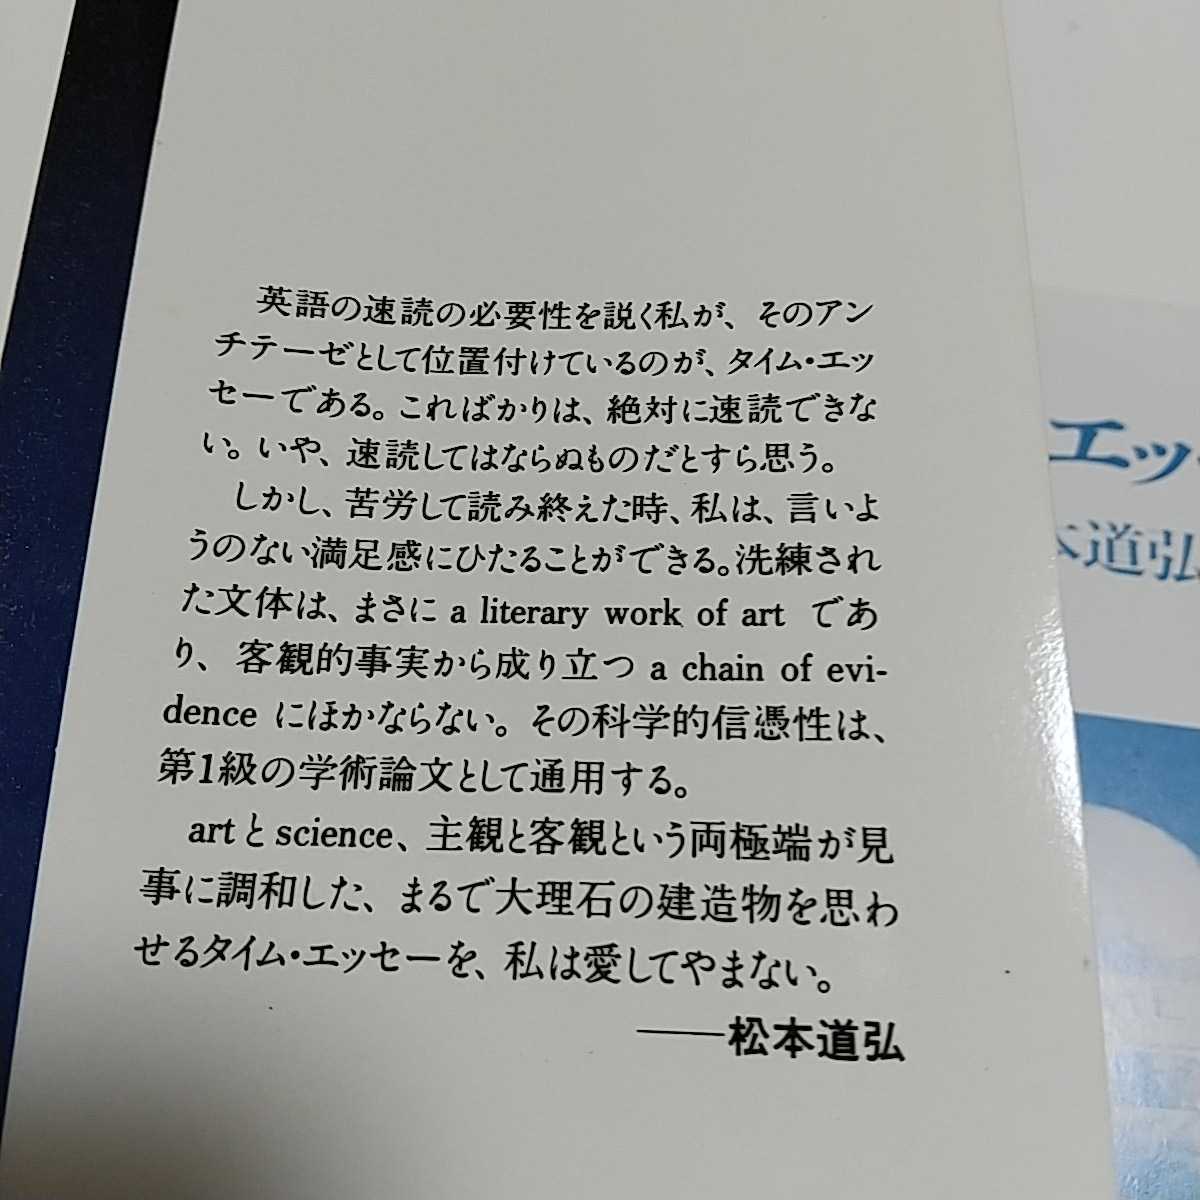 英語の速読の必要性を説く私が、そのアン
チテーゼとして位置付けているのが、タイム・エッ
セーである。こればかりは、絶対に速読できな
い。いや、速読してはならぬものだとすら思う。
しかし、苦労して読み終えた時、私は、言いよ
うのない満足感にひたることができる。洗練され
た文体は、まさに a literary work of art であ
り、客観的事実から成り立つ a chain of evi-
dence にほかならない。その科学的信憑性は、
第1級の学術論文として通用する。
artとscience、主観と客観という両極端が見
事に調和した、まるで大理石の建造物を思わ
せるタイム・エッセーを、私は愛してやまない。
――松本道弘
エッ
本道弘